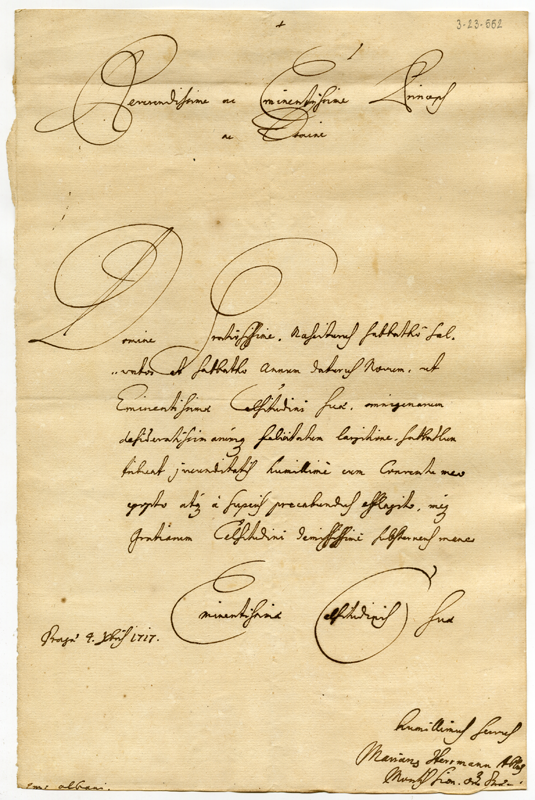 3-23-652
Reverendissime ac Eminentissime Princeps
ac Domine
Domine Gratiosissime. Nasciturus Sabbatho Sal-
vator et Sabbatho Annum daturus Novum, ut
Eminentissimæ Celsitudini Suæ, omnigenarum
desideratissimarumq felicitatum largitione, Sabbatum
tribuat jucunditatis humillime cum Conventu meo
opto atq à Superis precabundus efflagito, meq
Gratiarum Celsitudini demississime substernens maneo
Eminentissimæ Celsitudinis Suæ
Pragæ 9. Xbris 1717.
humillimus servus
Marianus Herrmann Abbas
Montis Sion.